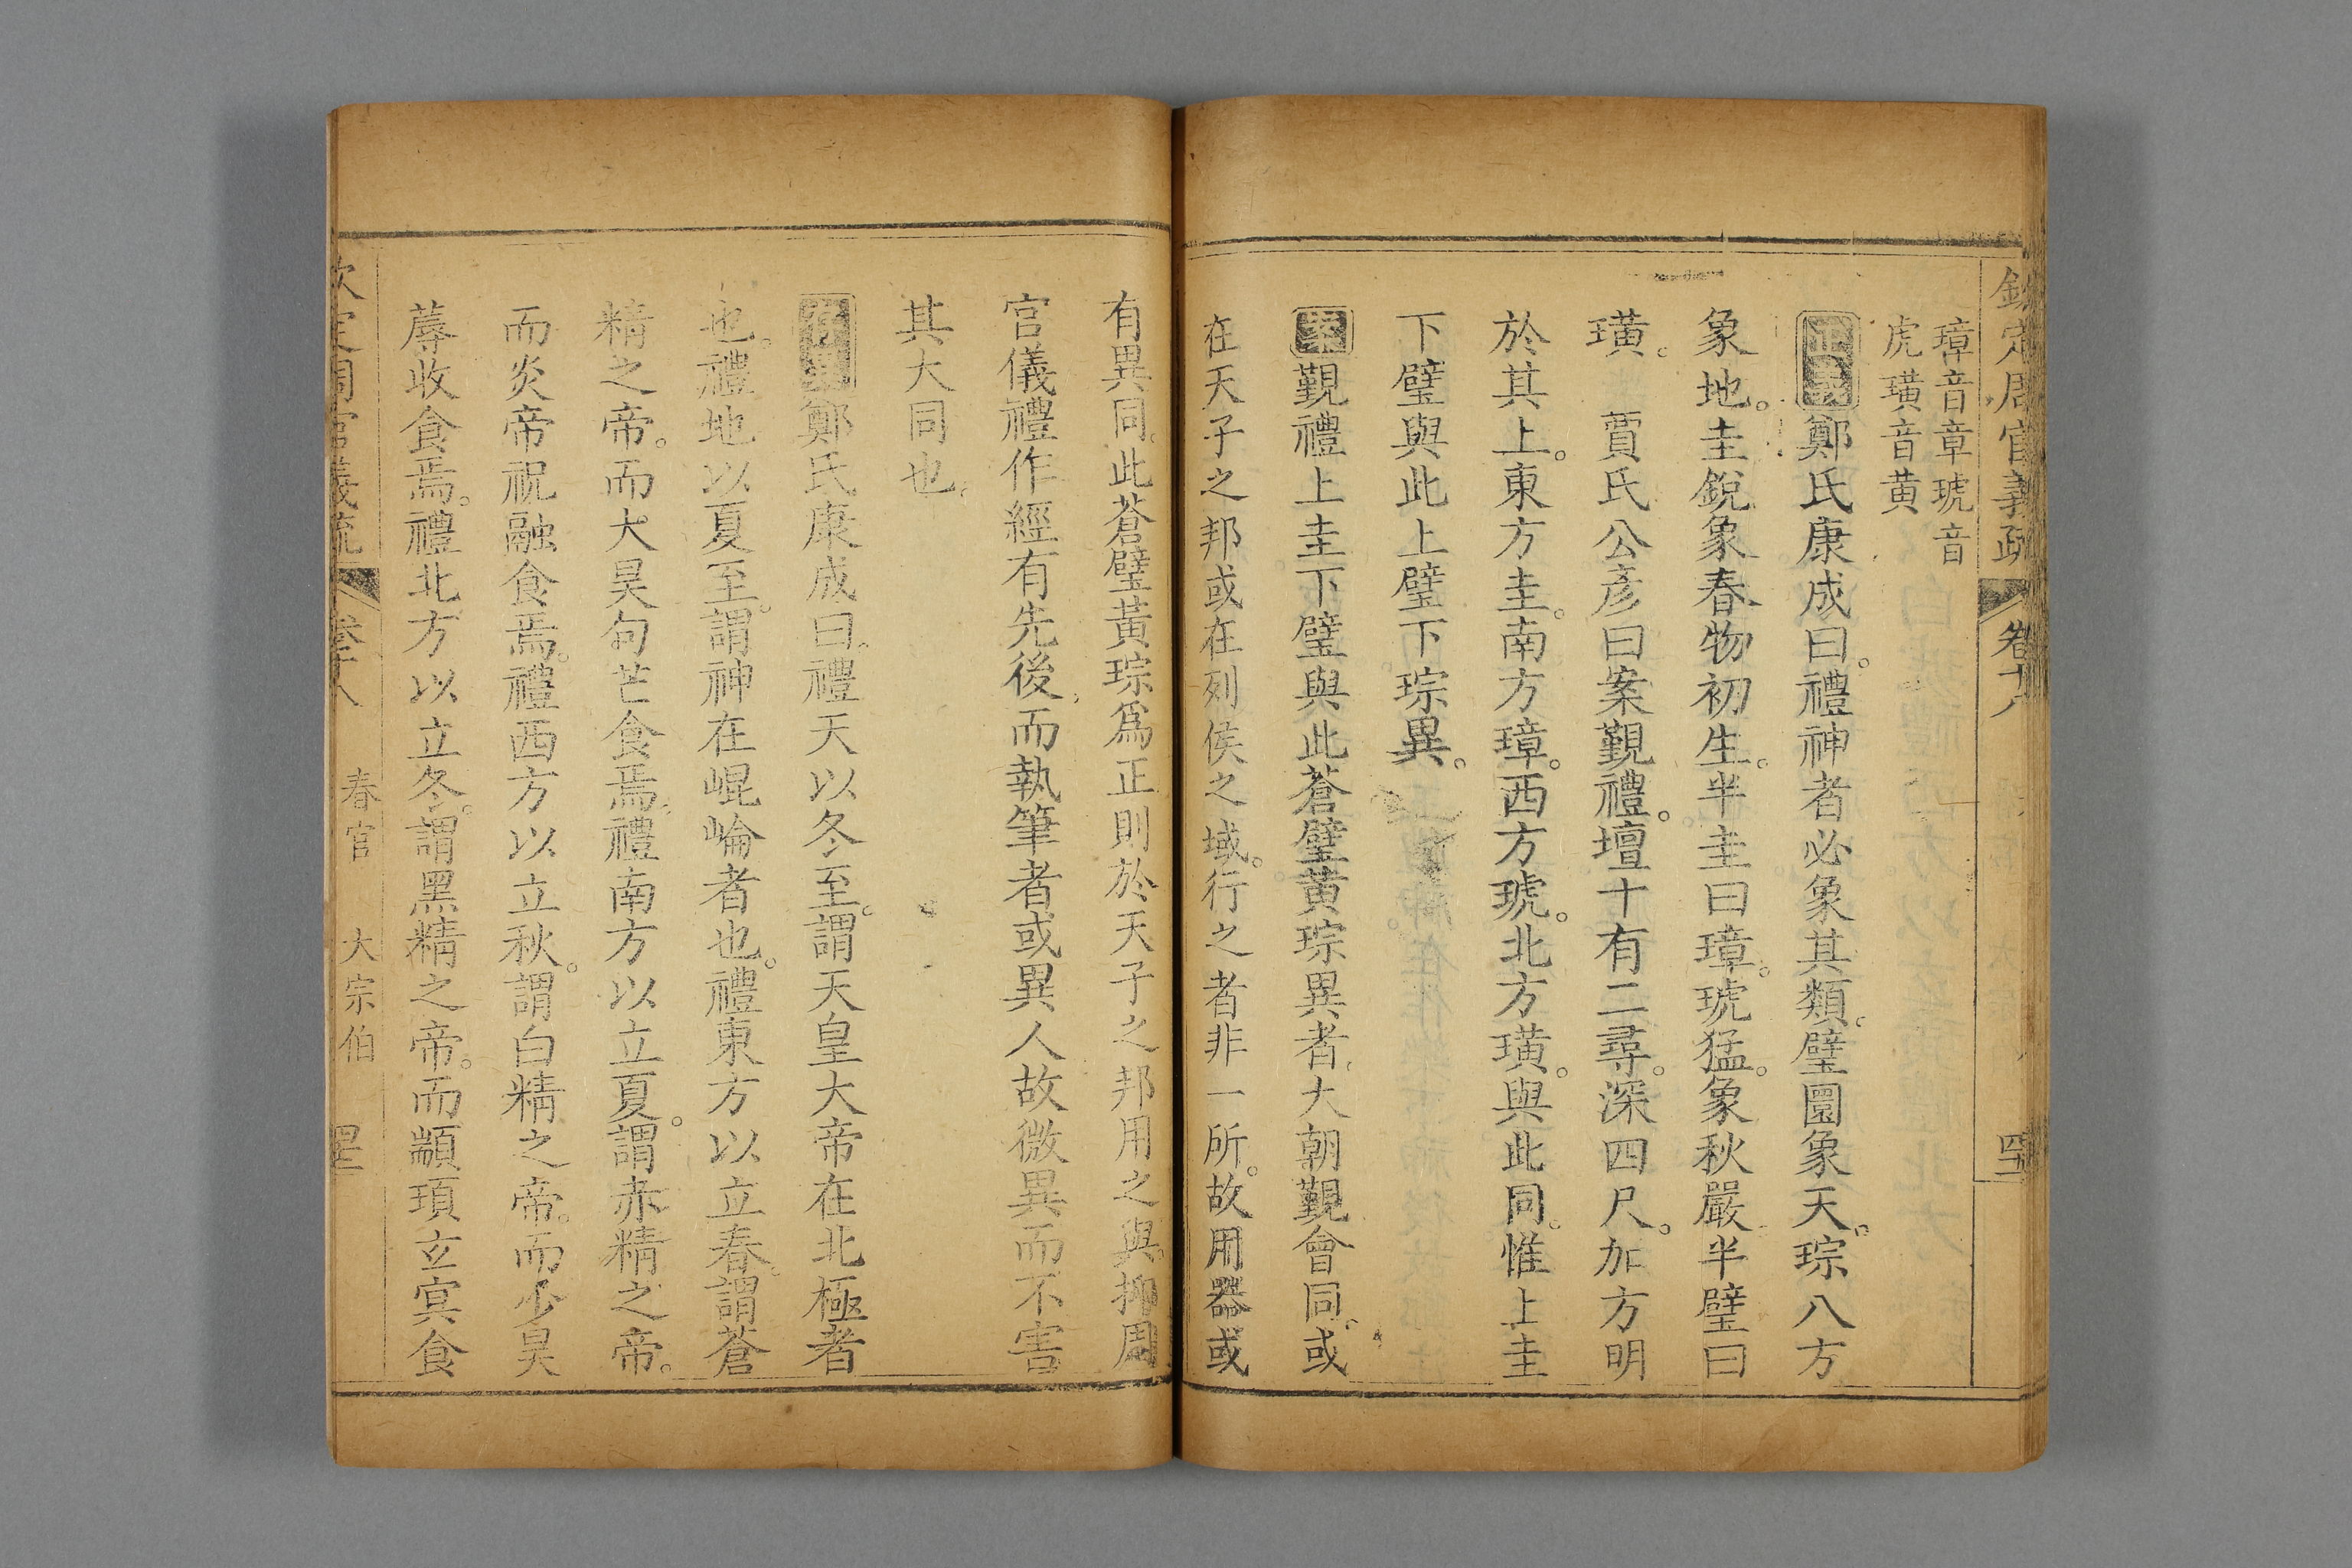 欽定周官義疏 卷十八 四十四
璋音章琥音
虎璜音黃
正義鄭氏康成曰。禮神者必象其類。璧圜象天。琮八方
象地。圭銳象春物初生。半圭曰璋。琥猛。象秋嚴。半璧曰
璜。 賈氏公彥曰案覲禮。壇十有二尋。深四尺。加方明
於其上。東方圭。南方璋。西方琥。北方璜。與此同。惟上圭
下璧與此上璧下琮異。
案覲禮上圭下璧與此蒼璧黃琮異者。大朝覲會同。或
在天子之邦或在列侯之域。行之者非一所。故用器或
有異同。此蒼璧黃琮爲正則於天子之邦用之與。抑周
官儀禮作經有先後。而執筆者或異人故微異而不害
其大同也。
鄭氏康成曰。禮天以冬至。謂天皇大帝在北極者
也。禮地以夏至。謂神在崐崘者也。禮東方以立春。謂蒼
精之帝。而大昊句芒食焉。禮南方以立夏。謂赤精之帝。
而炎帝祝融食焉。禮西方以立秋。謂白精之帝。而少昊
蓐收食焉。禮北方以立冬。謂黑精之帝。而顓頊玄冥食
欽定周官義疏 卷十八 春官 大宗伯